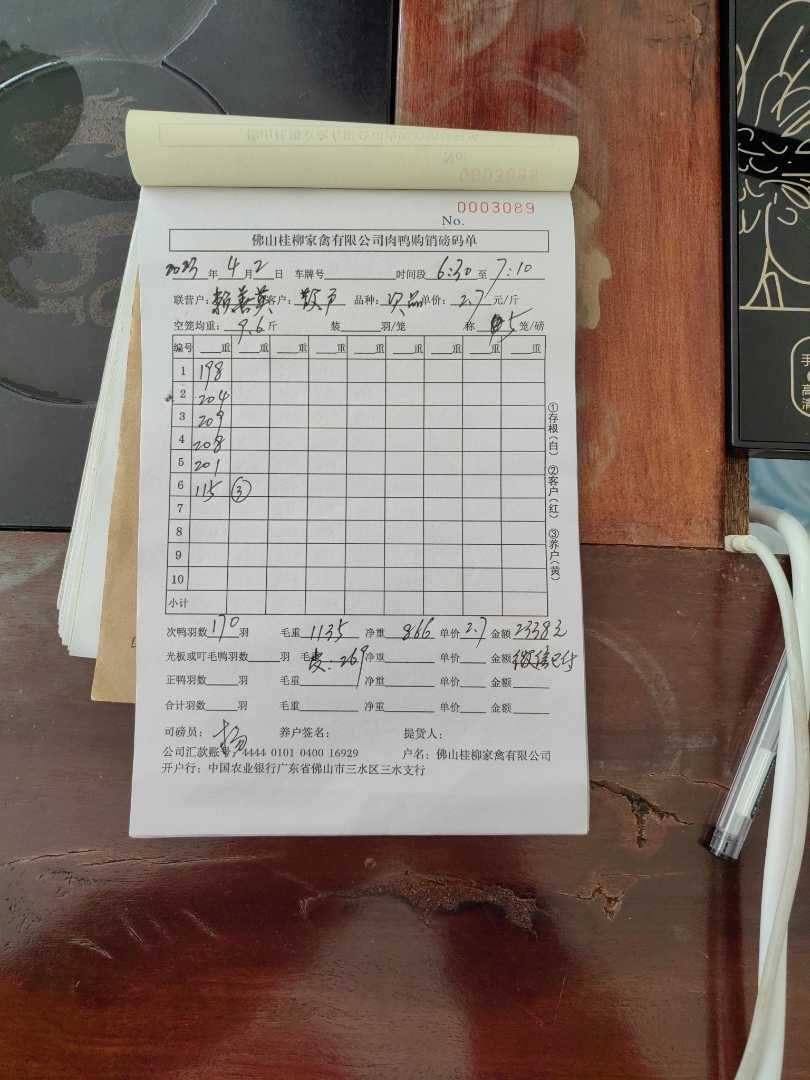 0003089
No.
佛山桂柳家禽有限公司肉鸭购销磅码单
2023年4月2日 车牌号 时间段6:30至7:10
联营户:赖善英 客户:散户 品种:次品 单价:2.7元/斤
空笼均重:9.6斤 装 羽/笼 称 5笼/磅
编号 重 重 重 重 重 重 重 重 重
1 198
2 204
3 209
4 208
5 201
6 115 ③
7
8
9
10
小计
①存根(白) ②客户(红) ③养户(黄)
次鸭羽数170羽 毛重1135 净重866 单价2.7 金额2338元
光板或叮毛鸭羽数 羽 毛重皮:269 净重 单价 金额微信已付
正鸭羽数 羽 毛重 净重 单价 金额
合计羽数 羽 毛重 净重 单价 金额
司磅员:杨 养户签名: 提货人:
公司汇款账号:4444 0101 0400 16929 户名:佛山桂柳家禽有限公司
开户行:中国农业银行广东省佛山市三水区三水支行
手
高
清